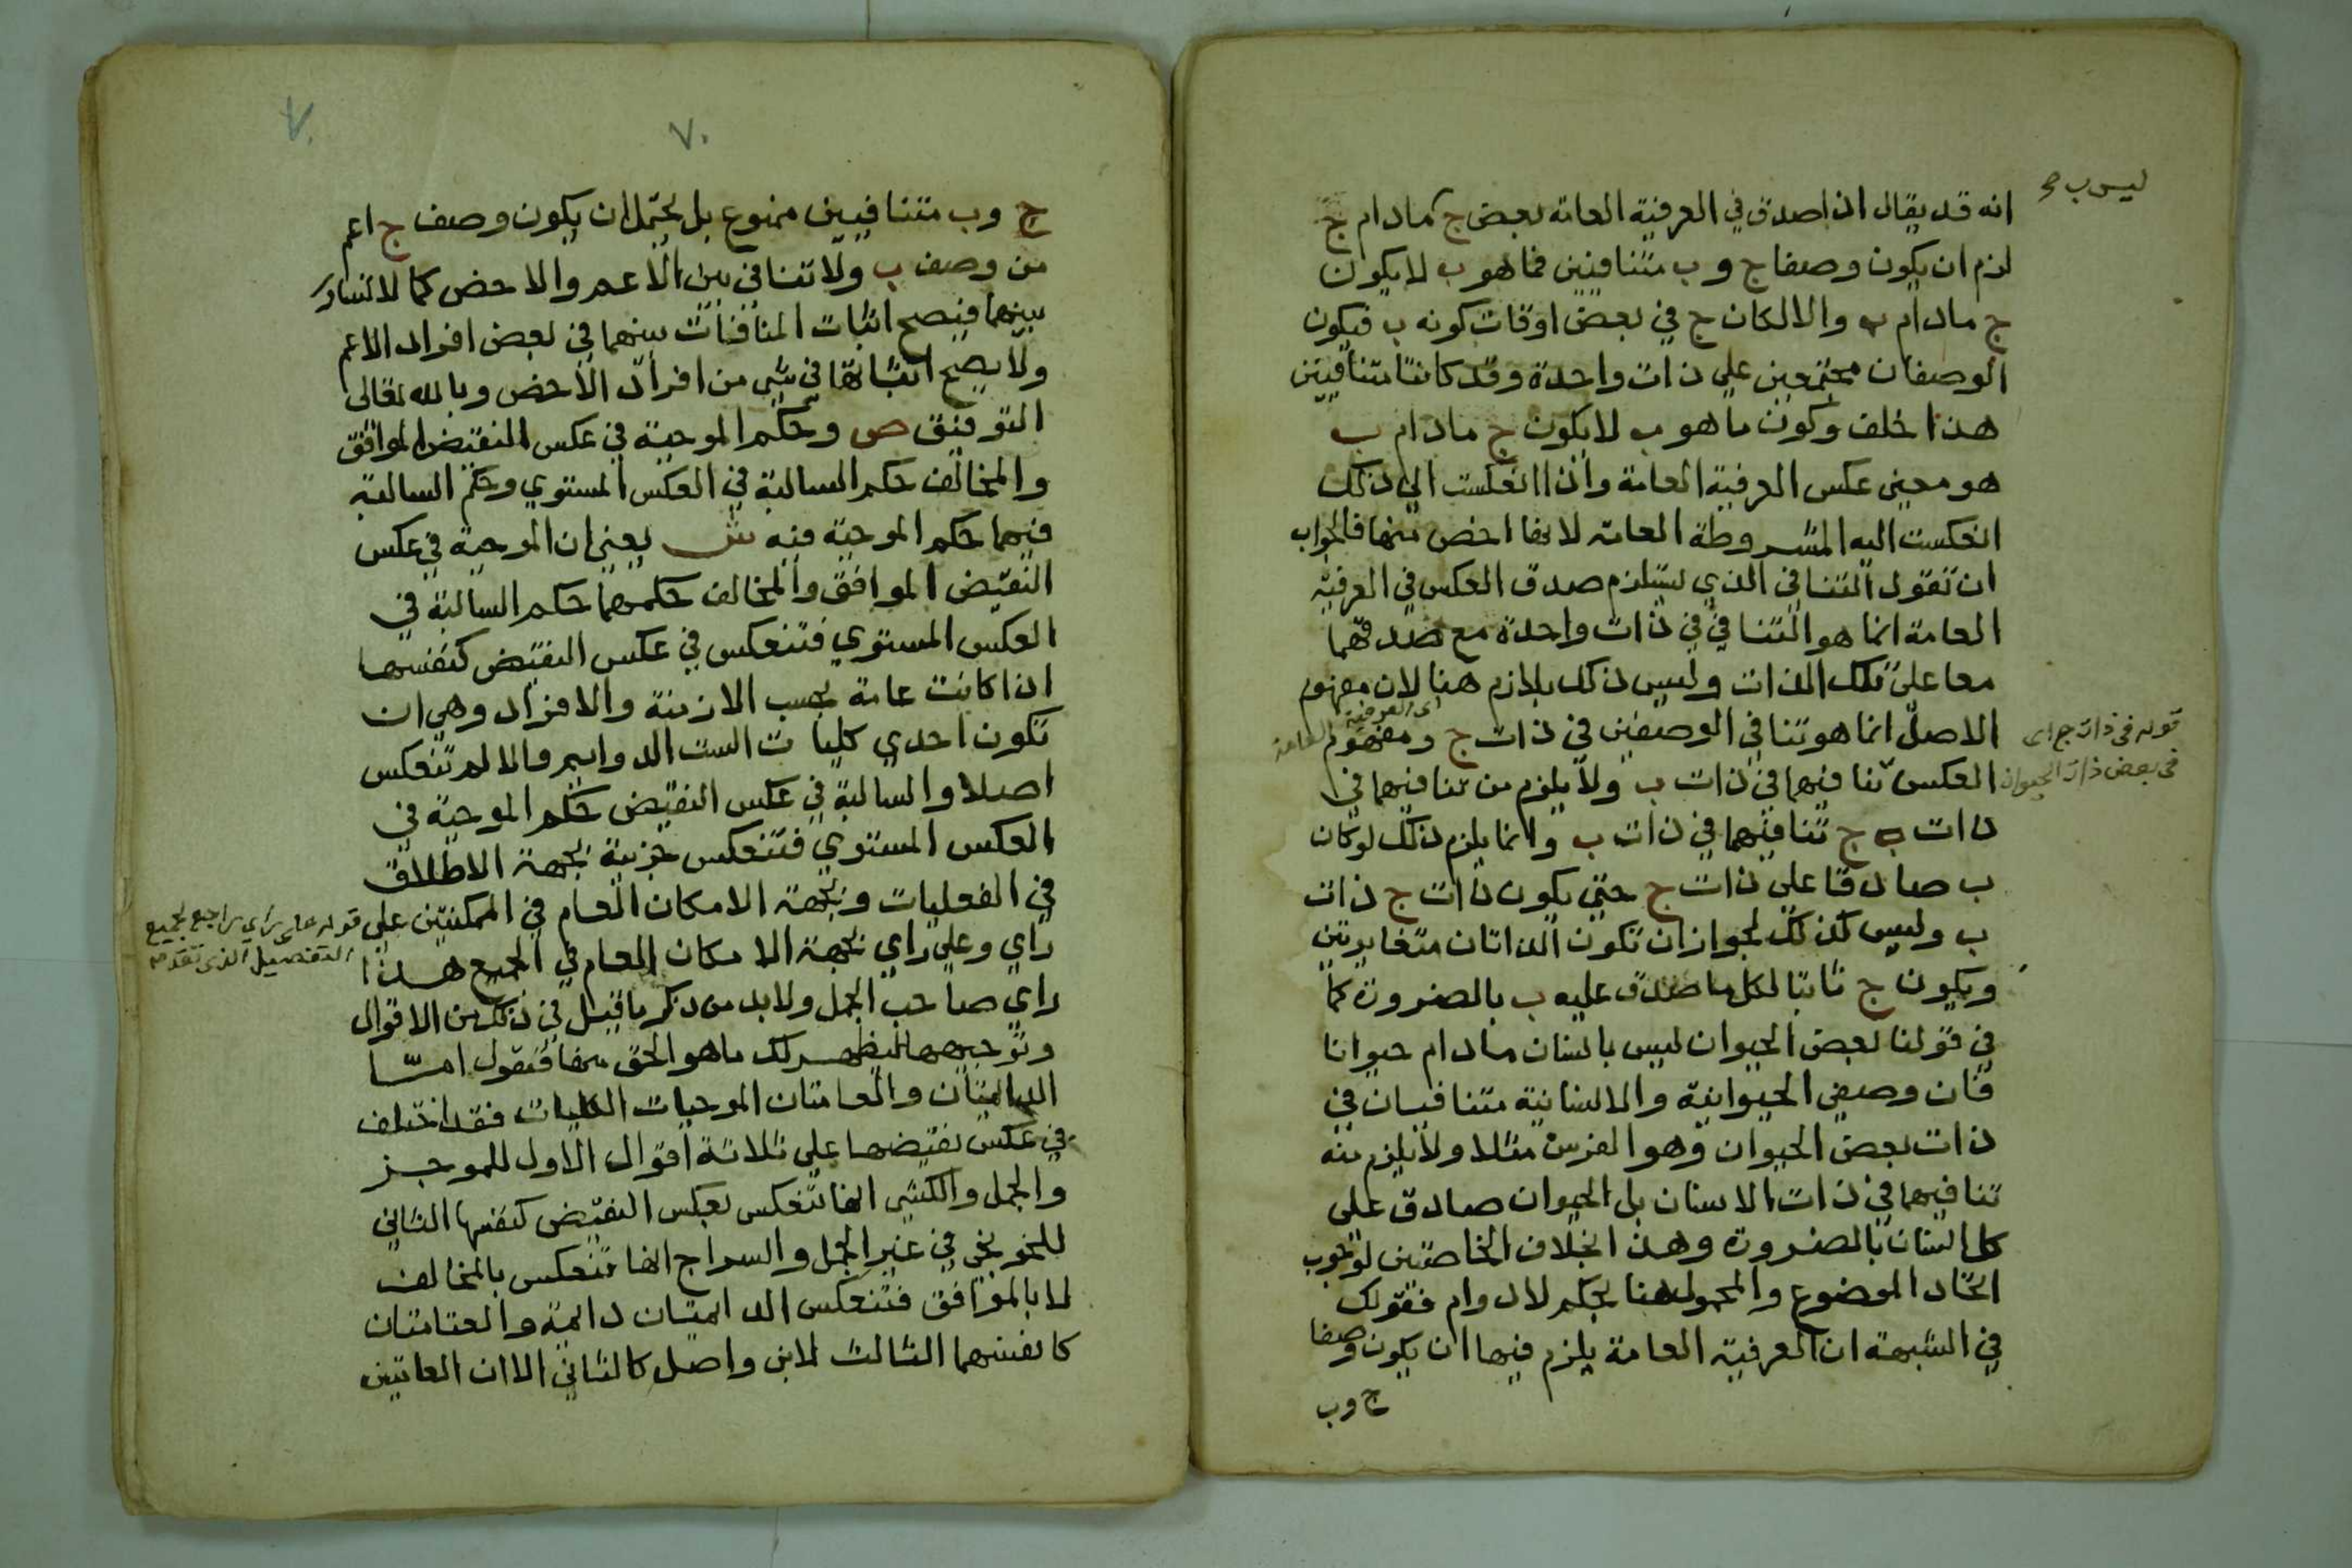 ليس ب صح
انه قد يقال اذا صدق في العرفية العامة بعض ج مادام ج
لزم ان يكون وصفا ج و ب متنافيين فما هو ب لا يكون
ج مادام ب والا لكان ج في بعض اوقات كونه ب فيكون
الوصفان مجتمعين علي ذات واحدة وقد كانتا متنافيين
هذا خلف وكون ما هو ب لا يكون ج مادام ب
هو معني عكس العرفية العامة واذا انعكست الي ذلك
انعكست اليه المشروطة العامة لانها اخص منها فالجواب
ان تقول التنافي الذي يستلزم صدق العكس في العرفية
العامة انما هو التنافي في ذات واحدة مع صدقهما
معا علي تلك الذات وليس ذلك بلازم هنا لان مفهوم
الاصل انما هو تنافي الوصفين في ذات ج ومفهوم
اى العرفية العامة
قوله فى ذات ج اى
فى بعض ذات الحيوان
العكس تنافيهما في ذات ب ولا يلزم من تنافيهما في
ذات ج تنافيهما في ذات ب وانما يلزم ذلك لو كان
ب صادقا علي ذات ج حتي يكون ذات ج ذات
ب وليس كذلك لجواز ان تكون الذاتان متغايرتين
ويكون ج ثابتا لكل ما صدق عليه ب بالضرورة كما
في قولنا بعض الحيوان ليس بانسان مادام حيوانا
فان وصفي الحيوانية والانسانية متنافيان في
ذات بعض الحيوان وهو الفرس مثلا ولا يلزم منه
تنافيهما في ذات الانسان بل الحيوان صادق علي
كل انسان بالضرورة وهذا بخلاف الخاصتين لوجوب
اتحاد الموضوع والمحمول هنا بحكم لادوام فقولك
في الشبهة ان العرفية العامة يلزم فيها ان يكون وصفا
ج وب
٧٠
٧٠
ج وب متنافيين ممنوع بل يحتمل ان يكون وصف ج اعم
من وصف ب ولا تنافي بين الاعم والاخص كما لا تساوي
بينهما فيصح اثبات المنافات بينهما في بعض افراد الاعم
ولا يصح اثباتها في شي من افراد الاخص وبالله تعالي
التوفيق ص وحكم الموجبة في عكس النقيض الموافق
والمخالف حكم السالبة في العكس المستوي وحكم السالبة
فيهما حكم الموجبة فيه ش يعني ان الموجبة في عكس
النقيض الموافق والمخالف حكمهما حكم السالبة في
العكس المستوي فتنعكس في عكس النقيض كنفسها
اذا كانت عامة بحسب الازمنة والافراد وهي ان
تكون احدي كليات الست الدوايم والا لم تنعكس
اصلا والسالبة في عكس النقيض حكم الموجبة في
العكس المستوي فتنعكس جزيية بجهة الاطلاق
في الفعليات وبجهة الامكان العام في الممكنتين علي
راي وعلي راي بجهة الامكان العام في الجميع هذا
قوله على راي راجع لجميع
التفصيل الذى تقدم
راي صاحب الجمل ولابد من ذكر ما قيل في ذلك من الاقوال
وتوجيهها ليظهر لك ما هو الحق منها فنقول اما
الدايمتان والعامتان الموجبات الكليات فقد اختلف
في عكس نقيضها علي ثلاثة اقوال الاول للموجز
والجمل والكشي انها تنعكس بعكس النقيض كنفسها الثاني
للخونجي في غير الجمل والسراج انها تنعكس بالمخالف
لا بالموافق فتنعكس الدايمتان دايمة والعامتان
كانفسهما الثالث لابن واصل كالثاني الا ان العامتين